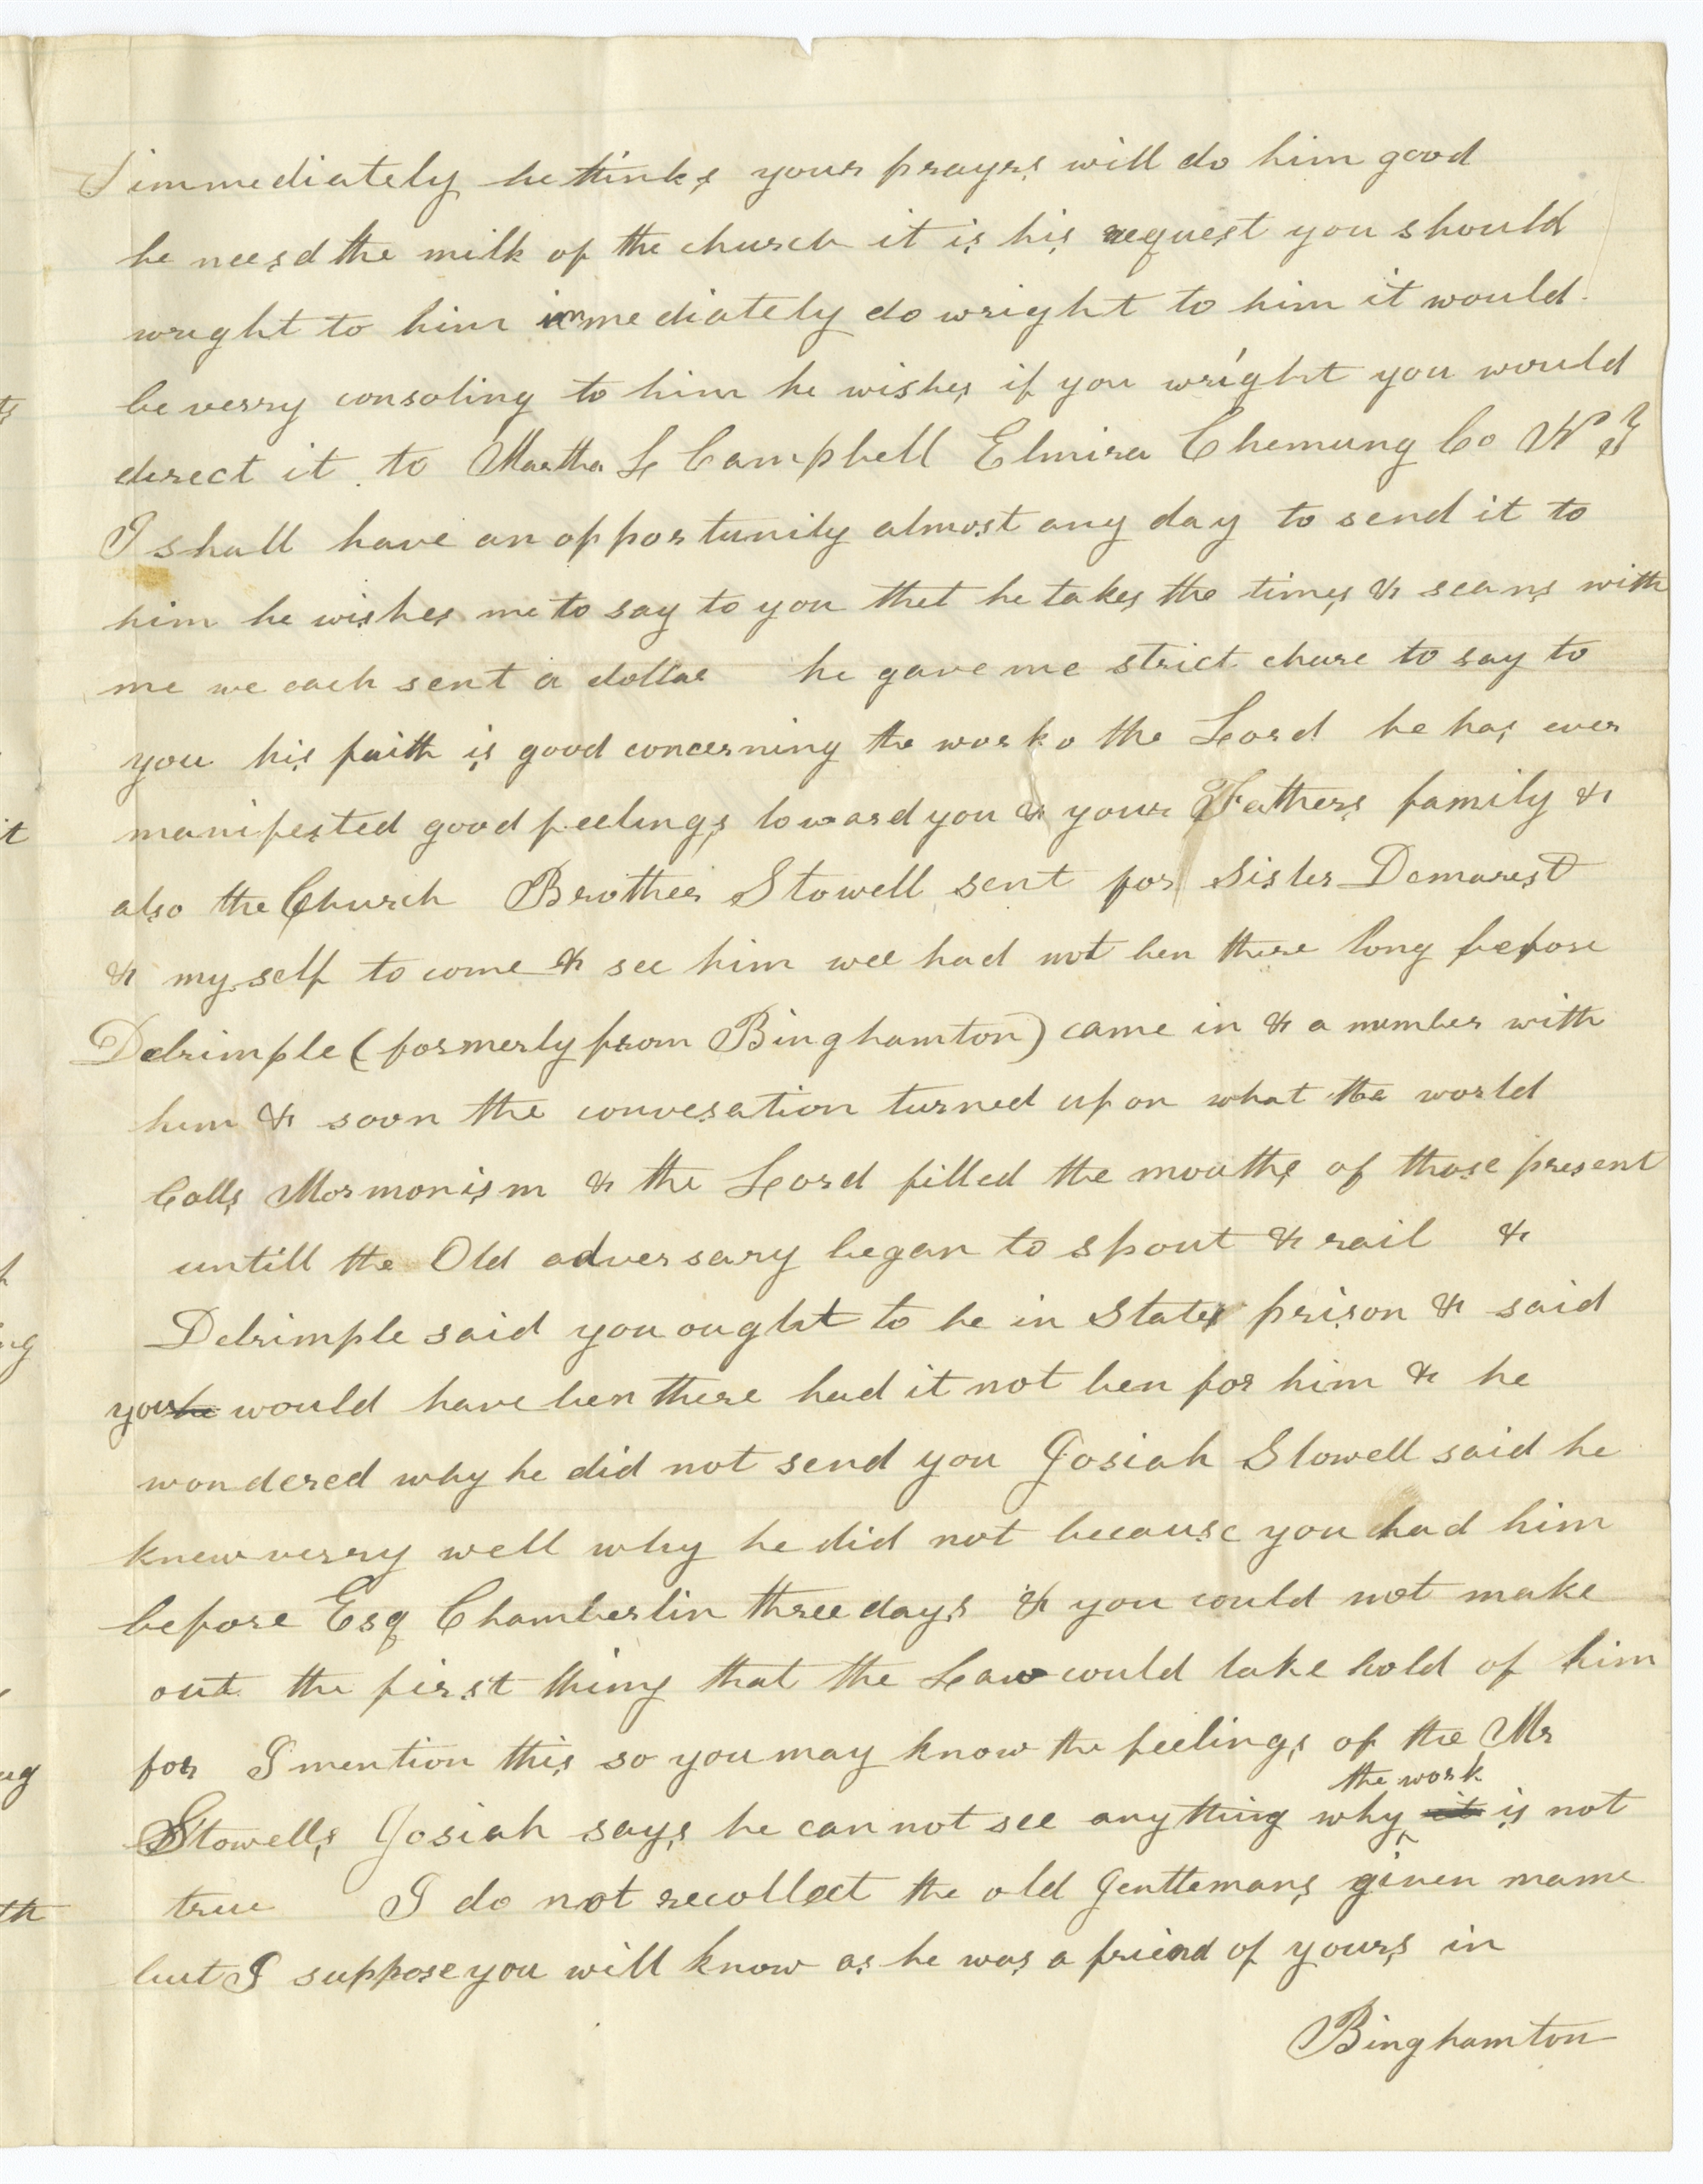 immediately he thinks your prayrs will do him good
he neesd the milk of the church it is his request you should
wright to him immediately do wright to him it would
be verry consoling to him he wishes if you wright you would
direct it to Martha L Campbell Elmira Chemung Co N Y
I shall have an oppor tunity almost any day to send it to
him he wishes me to say to you thet he takes the times & seans with
me we each sent a dollar he gave me strict chare to say to
you his faith is good concerning the work o the Lord he has ever
manifested good feelings toward you & your Fathers family &
also the Church Brother Stowell sent for Sister Demarest
& my self to come & see him wee had not ben there long before
Delrimple (formerly from Binghamton) came in & a member with
him & soon the convesation turned upon what the world
Calls Mormonism & the Lord filled the mouths of those present
untill the Old adversary began to spout & rail &
Delrimple said you ought to be in States prison & said
you he would have ben there had it not ben for him & he
wondered why he did not send you Josiah Stowell said he
knew verry well why he did not because you had him
before Esq Chamberlin three days & you could not make
out the first thing that the Law could take hold of him
for I mention this so you may know the feelings of the Mr
the work
Stowells Josiah says he can not see any thing why it is not
true I do not recollect the old Gentlemans given name
but I suppose you will know as he was a friend of yours in
Binghamton
ts
it
ng
ug
th